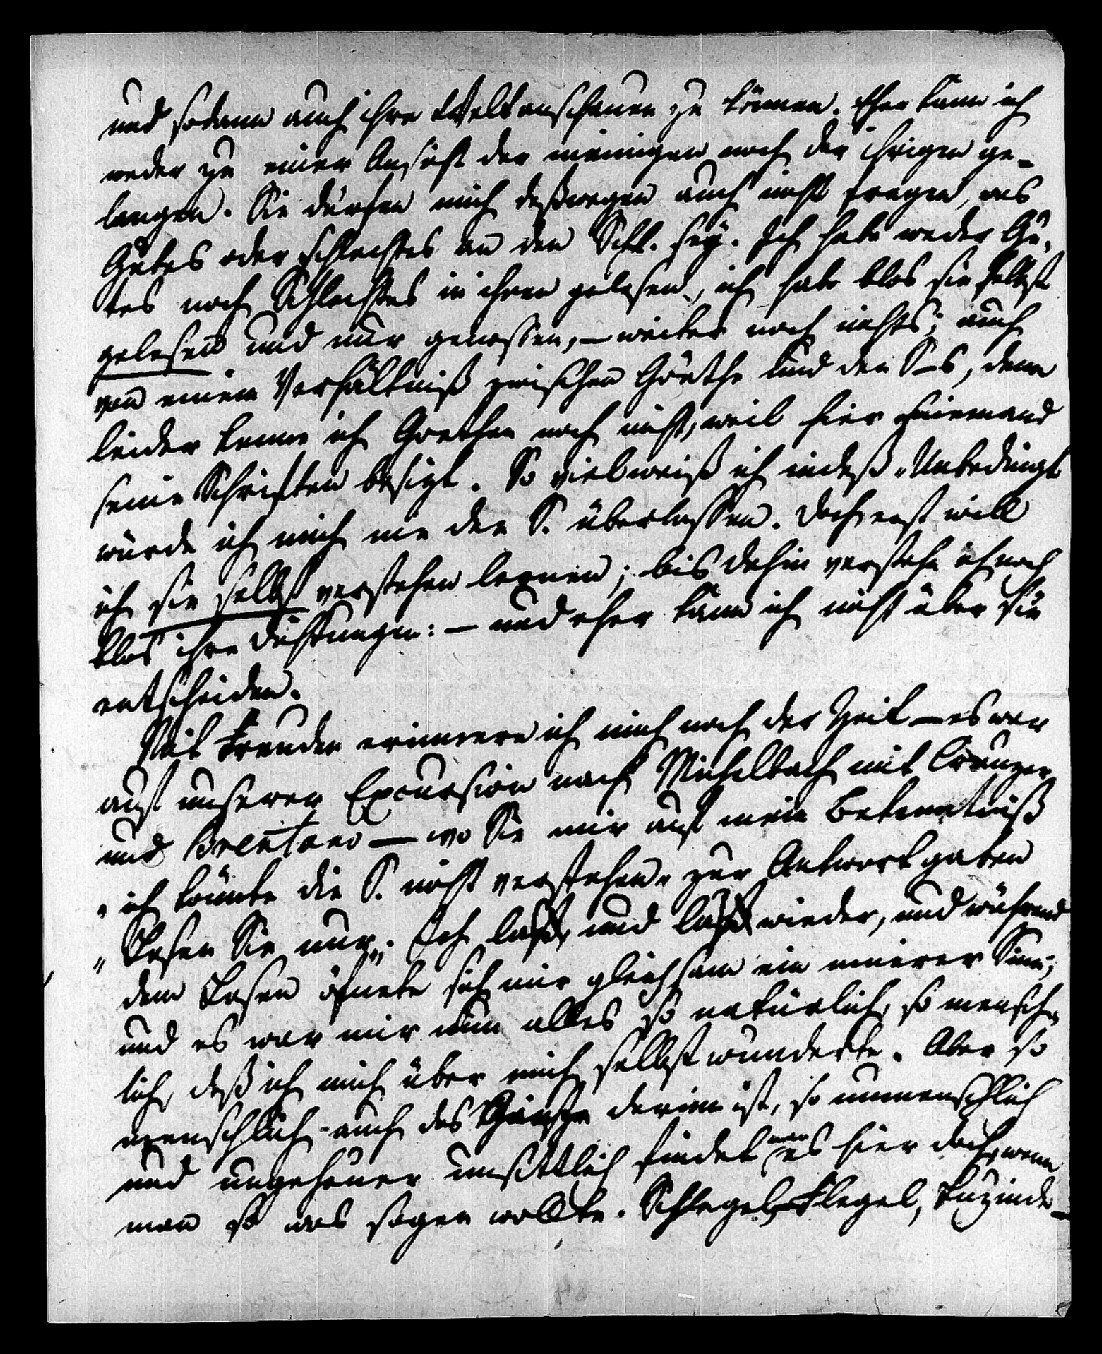 und sodann auch ihre Welt anschauen zu können. Eher kann ich
weder zu einer Ansicht der meinigen noch der ihrigen ge-
langen. Sie dürfen mich deßwegen auch nicht fragen, was
Gutes oder schlechtes an den Schl. sey. Ich habe weder Gu-
tes noch Schlechtes in ihnen gelesen, ich habe blos sie selbst
gelesen und nur genossen, – weiter noch nichts; auch
von einem Verhältniß zwischen Göethe und den S–s, denn
leider kenne ich Goethen noch nicht, weil hier Niemand
seine Schriften besizt. So viel weiß ich indeß, Unbedingt
würde ich mich nie den S. überlassen. Doch erst will
ich sie selbst verstehen lernen; bis dahin verstehe ich noch
blos ihre Dichtungen: – und eher kann ich nicht über sie
entscheiden.
Mit Freuden erinnere ich mich noch der Zeit – es war
auf unserer Excursion nach Michelbach mit Creuzer
und Brentano – wo Sie mir auf mein Bekenntniß
„ich könnte die S. nicht verstehen„ zur Antwort gaben
„Lesen Sie nur„. Ich las, und las wieder, und während
dem Lesen öfnete sich mir gleichsam ein innerer Sinn;
und es war mir nun alles so natürlich, so mensch-
lich, daß ich mich über mich selbst wunderte. Aber so
menschlich auch das Ganze darinn ist, so unmenschlich
und ungeheuer unsittlich findet man es hier doch, wenn
man so was sagen wollte. Schlegel–Flegel, Luzinde–